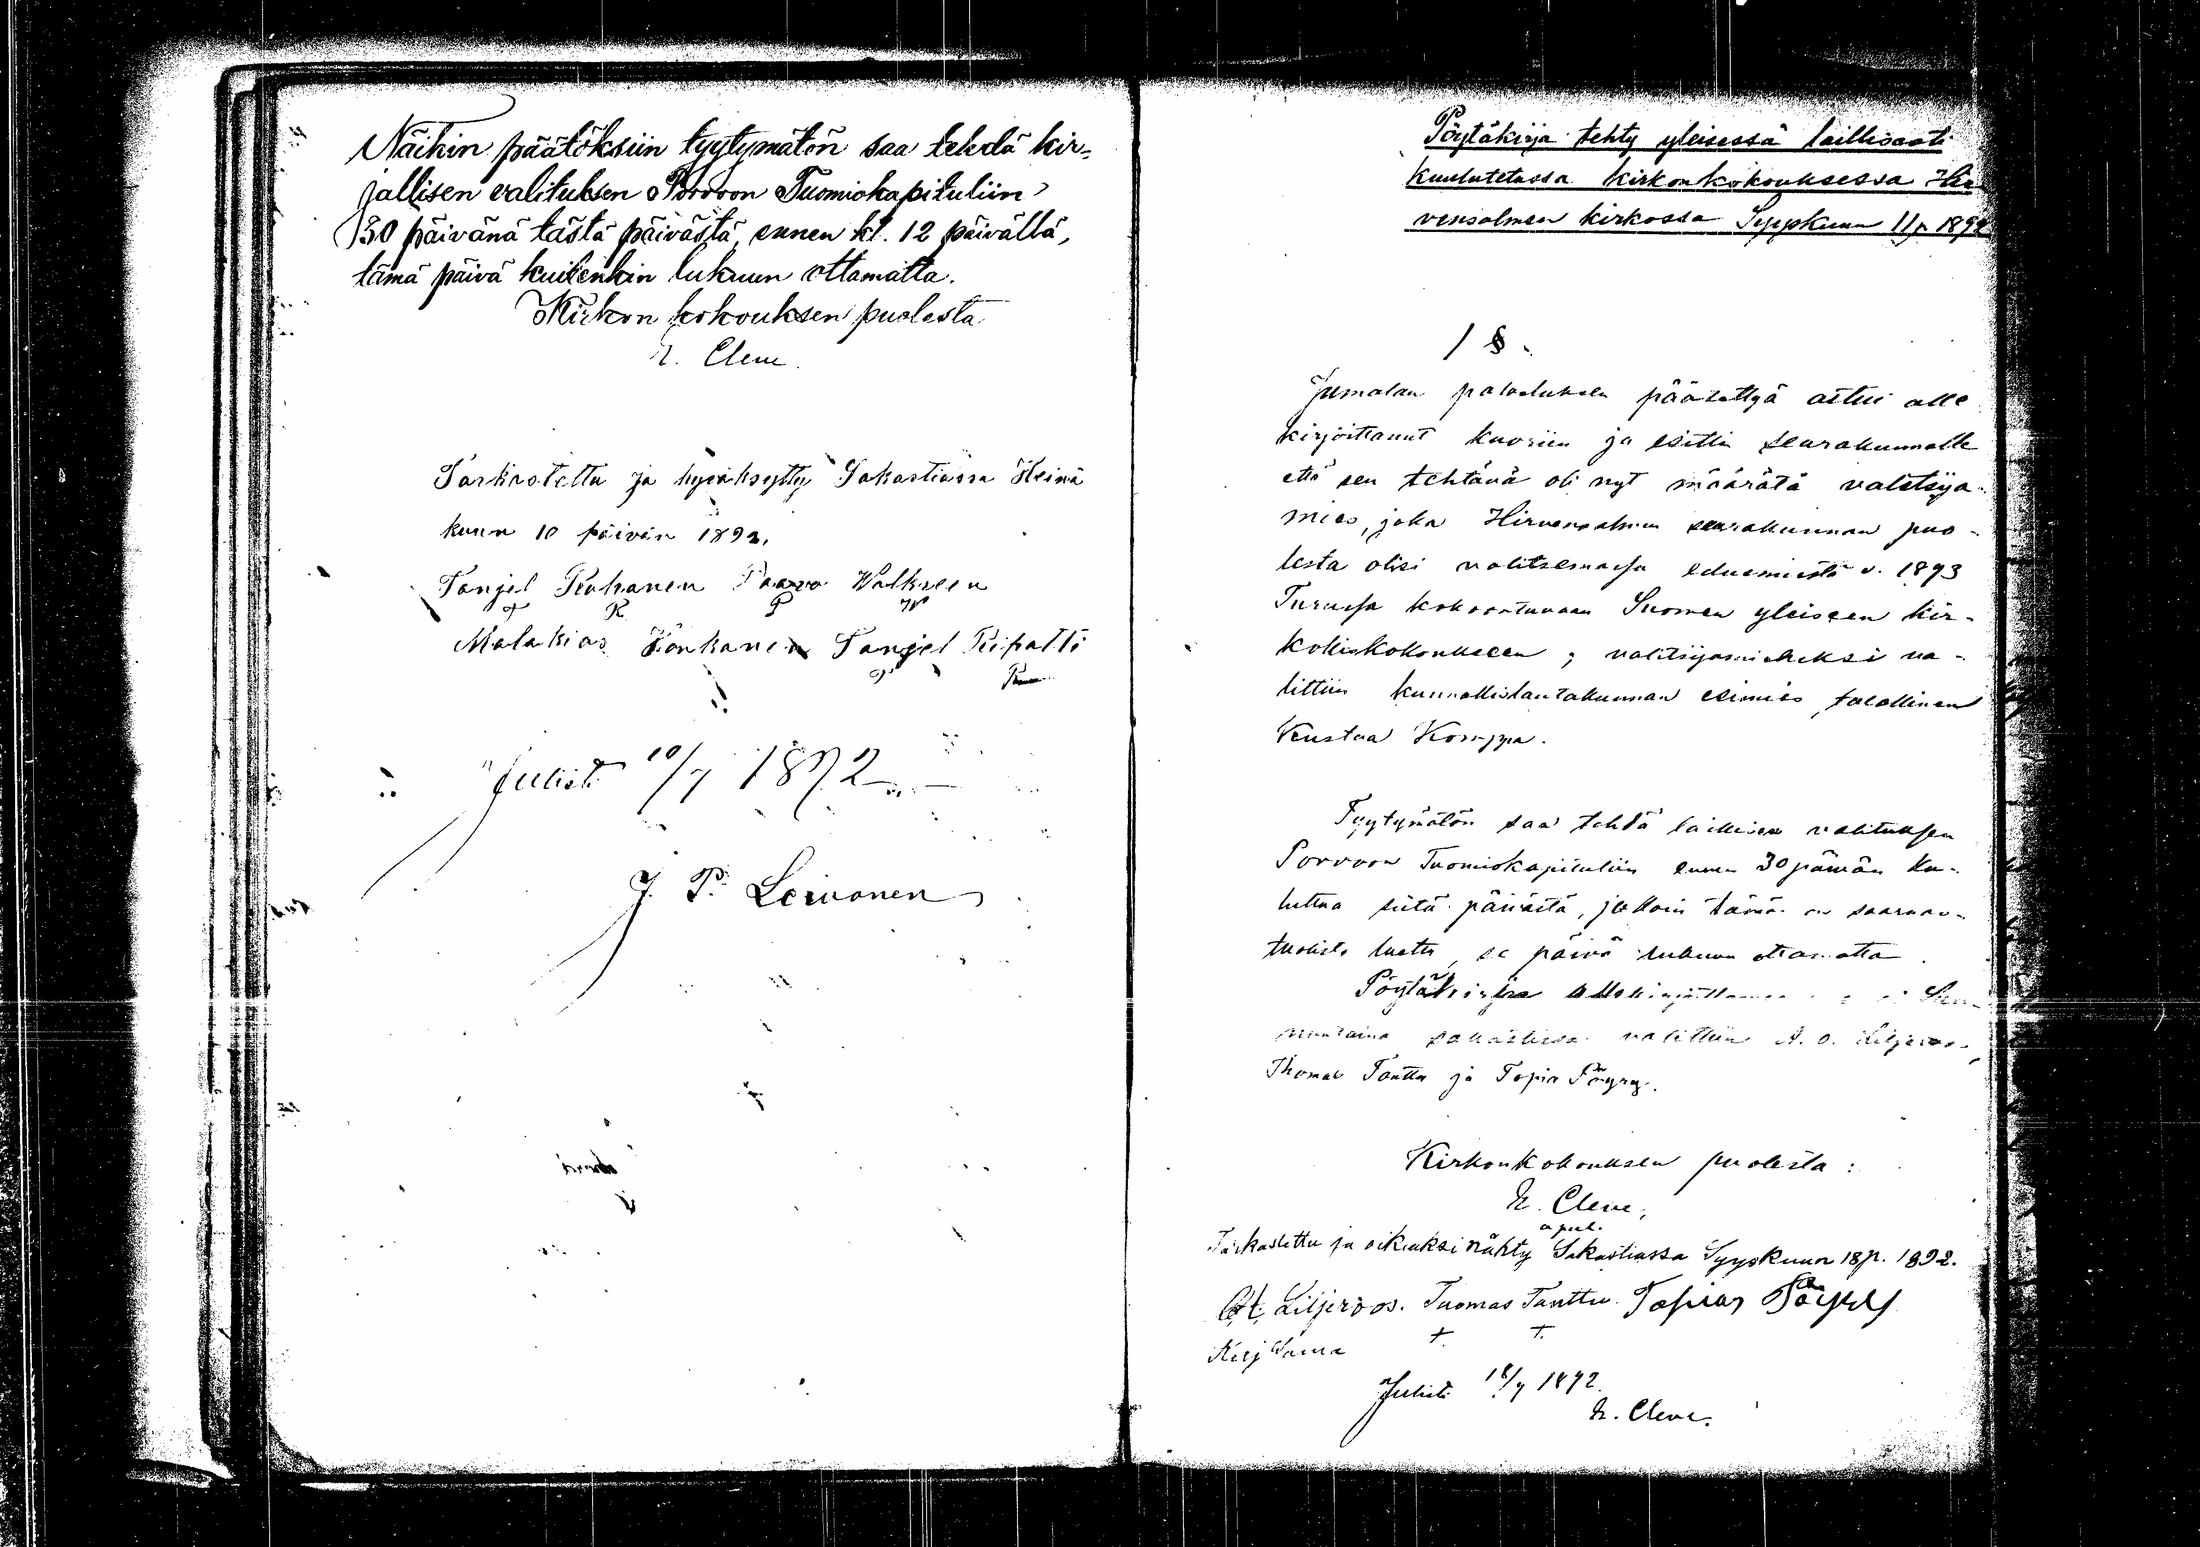 Näihin päätöksiin tyytymätön saa tehdä kir-
jallisen valituksen Porvoon Tuomiokapituliin
30 päivänä tästä päivästä, ennen kl. 12 päivällä,
tämä päivä kuitenkin lukuun ottamatta.
Kirkon kokouksen puolesta
K. Cleve.
Tarkastettu ja hyväksytty Sakastiassa Heinä
kuun 10 päivän 1892.
Tanjel Paavo
T R P W
Malakias Tanjel Ripatti
T R
Julist. 10/7 1892.
J. P. Loivonen
Pöytäkirja tehty yleisessä laillisesti
kuulutetussa kirkonkokouksessa Hir
vensalmen kirkossa Syyskuun 11 p. 1892
1 §.
Jumalan palveluksen päätettyä astui alle
kirjoittanut kuoriin ja esitti seurakunnalle
että sen tehtävä oli nyt määrätä valitsija-
mies, joka Hirvensalmen seurakunnan puo-
lesta olisi valitsemassa edusmiestä v. 1893
Turussa kokoontuvaan Suomen yleiseen kir-
kolliskokoukseen; valitsijamieheksi va-
littiin kunnallislautakunnan esimies, talollinen
Kustaa Komppa.
Tyytymätön saa tehdä laillisen valituksen
Porvoon Tuomiokapituliin ennen 30 päivän ku-
luttua siitä päivästä, jolloin tämä on saarnas-
tuolista luettu, se päivä lukuun ottamatta.
Pöytäkirjaa allekirjoittamaan
sakastissa valittiin A. O. Liljeroos,
Thomas Tanttu ja Topia Pöyry.
Kirkonkokouksen puolesta:
K. Cleve,
apul.
Tarkastettu ja oikiaksi nähty Sakastiassa Syyskuun 18 p. 1892.
Liljeroos. Tuomas Tanttu. Topias Pöyry
Kirj Sama + +
Julist. 18/9 1892.
K. Cleve.